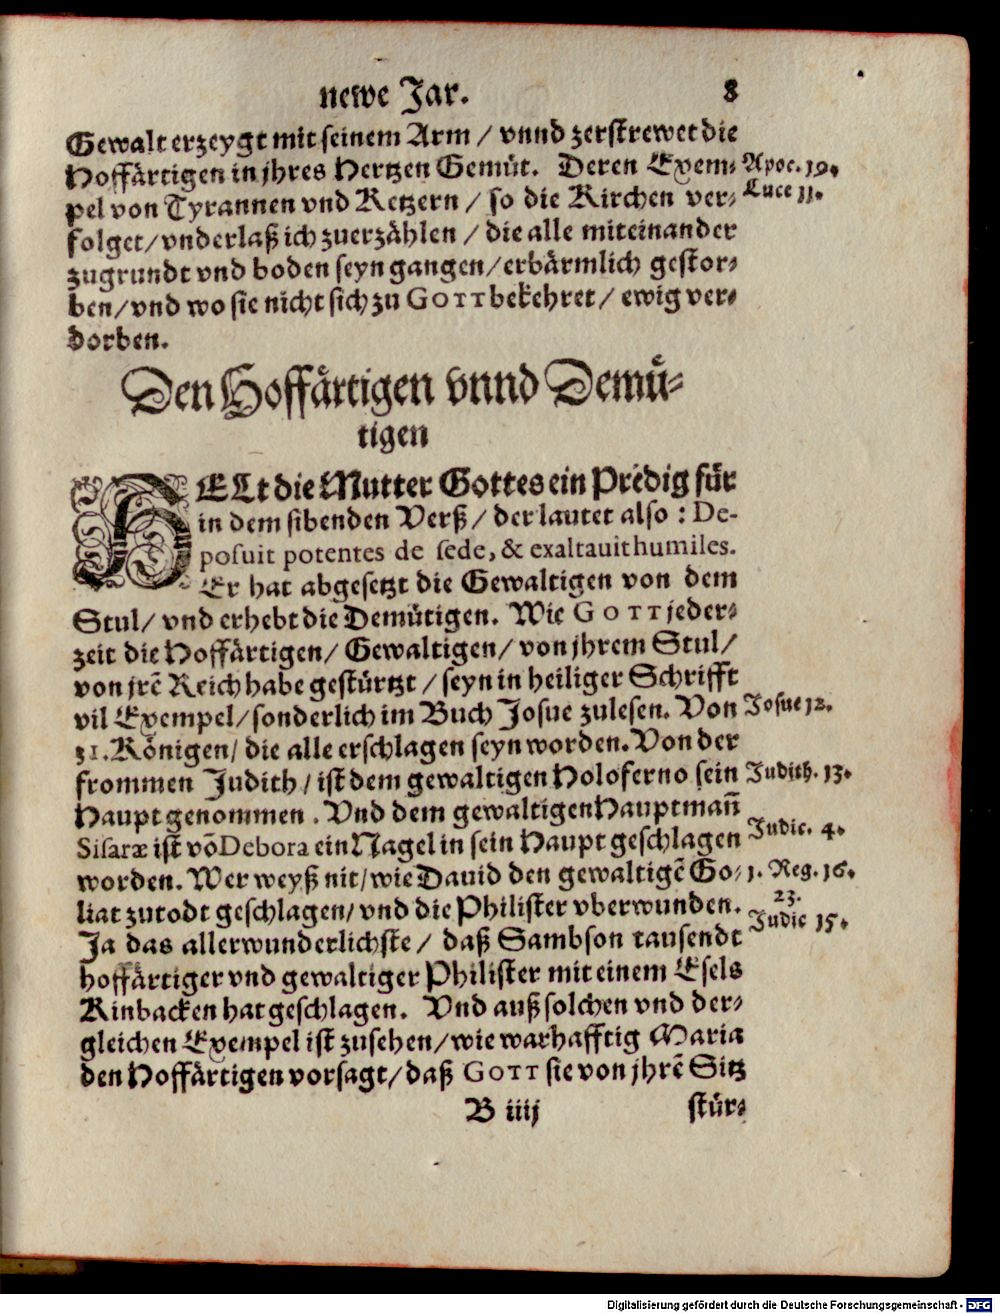 newe Jar. 8
Gewalt erzeygt mit seinem Arm / vnnd zerstrewet die
Hoffärtigen in jhres Hertzen Gemüt. Deren Exem- Apoc. 19.
pel von Tyrannen vnd Ketzern / so die Kirchen ver- Luce 11.
folget / vnderlaß ich zuerzählen / die alle miteinander
zugrundt vnd boden seyn gangen / erbärmlich gestor-
ben / vnd wo sie nicht sich zu GOTT bekehret / ewig ver-
dorben.
Den Hoffärtigen vnnd Demü-
tigen
HELt die Mutter Gottes ein Predig für
in dem sibenden Verß / der lautet also : De-
posuit potentes de sede, & exaltauit humiles.
Er hat abgesetzt die Gewaltigen von dem
Stul / vnd erhebt die Demütigen. Wie GOTT jeder-
zeit die Hoffärtigen / Gewaltigen / von jhrem Stul /
von jrē Reich habe gestürtzt / seyn in heiliger Schrifft
vil Exempel / sonderlich im Buch Josue zulesen. Von Josue 12.
31. Königen / die alle erschlagen seyn worden. Von der
frommen Judith / ist dem gewaltigen Holoferno sein Judith. 13.
Haupt genommen . Vnd dem gewaltigen Hauptmañ
Sisaræ ist vō Debora ein Nagel in sein Haupt geschlagen Judic. 4.
worden. Wer weyß nit / wie Dauid den gewaltigē Go- 1. Reg. 16.
liat zutodt geschlagen / vnd die Philister vberwunden. 23.
Ja das allerwunderlichste / daß Sambson tausendt Judic 15.
hoffärtiger vnd gewaltiger Philister mit einem Esels
Kinbacken hat geschlagen. Vnd auß solchen vnd der-
gleichen Exempel ist zusehen / wie warhafftig Maria
den Hoffärtigen vorsagt / daß GOTT sie von jhrē Sitz
B iiij stür-
Digitalisierung gefördert durch die Deutsche Forschungsgemeinschaft - DFG